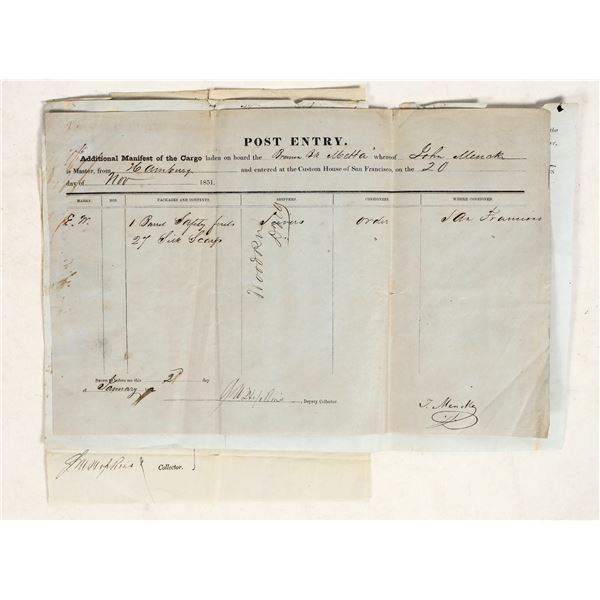 POST ENTRY.
Additional Manifest of the Cargo laden on board the Bremen Bk "Metta" whereof John Mencke
is Master, from Hamburg and entered at the Custom House of San Francisco, on the 20
day of Nov 1851.
MARKS. NOS. PACKAGES AND CONTENTS. SHIPPERS. CONSIGNEES. WHERE CONSIGNED.
E. W. 1 Barrel Safety fuses order San Francisco
27 Silk Scarfs "
Sworn to before me this 2 day
January
, Deputy Collector.
J. Mencke
J M Hopkins Collector.